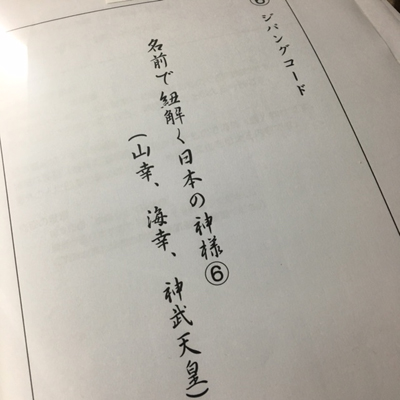 ⑥ ジパングコード
名前で紐解く日本の神様⑥
(山幸、海幸、神武天皇)